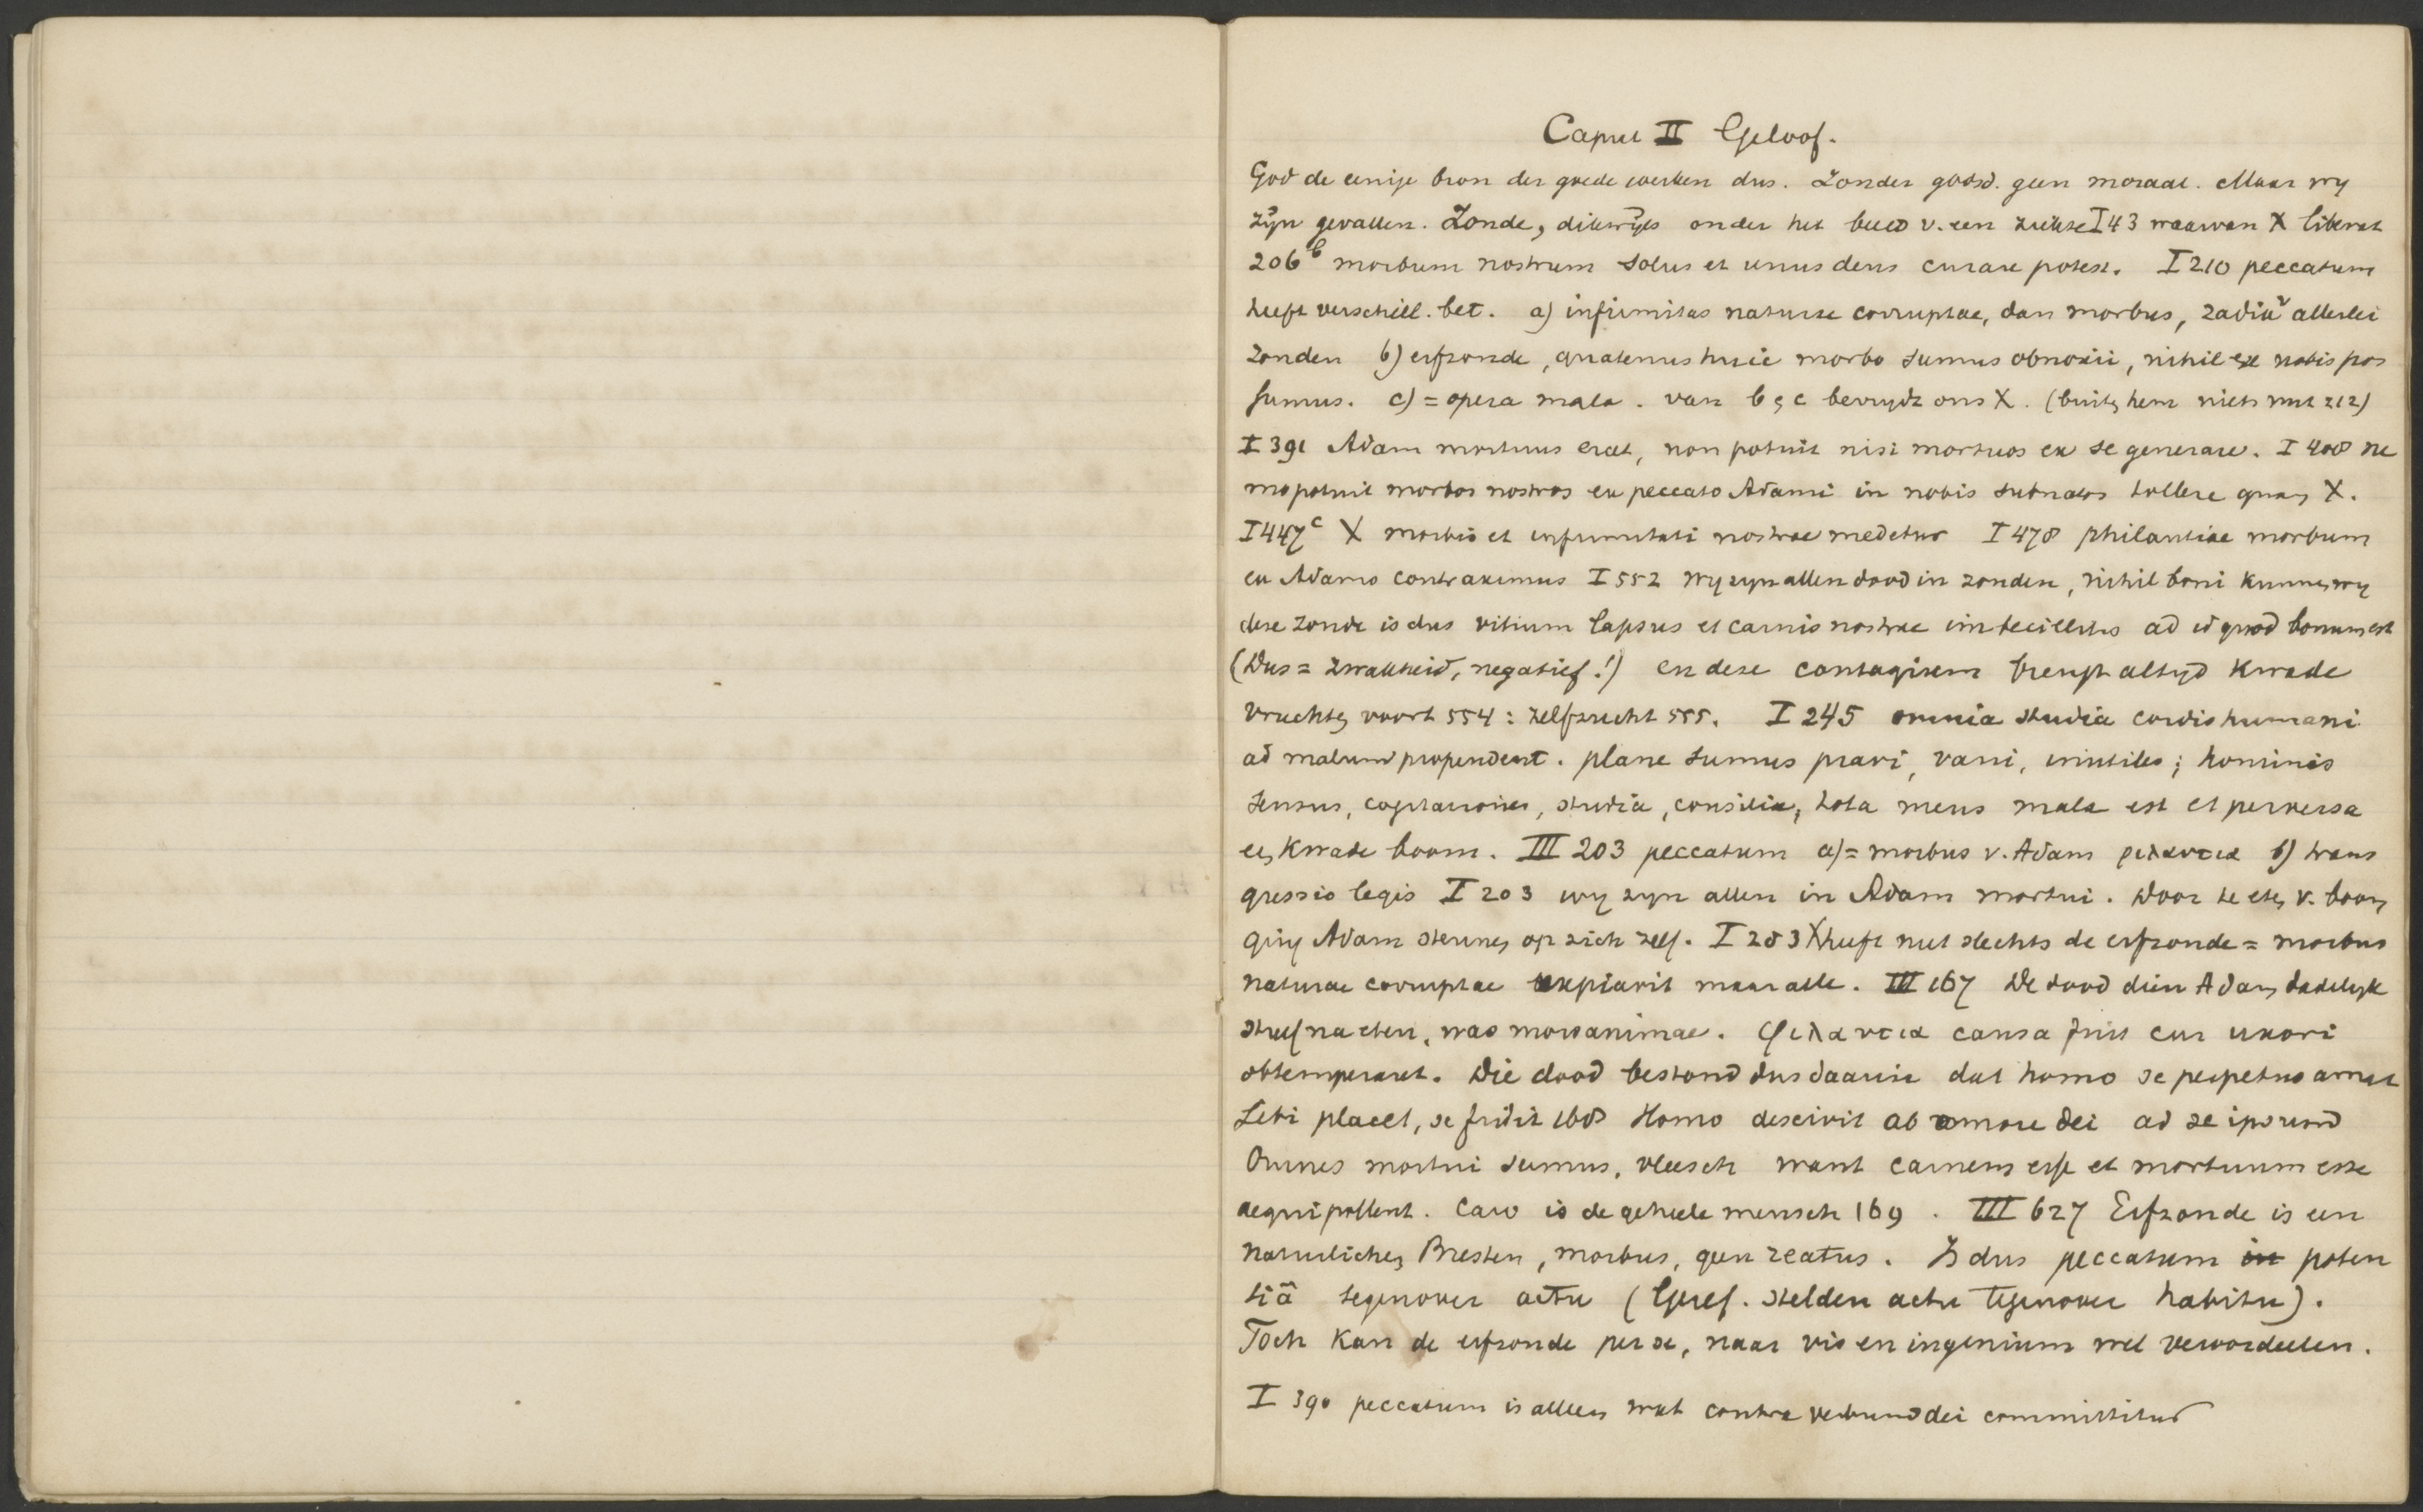 Caput II Geloof.
God de eenige bron der goede werken dus. Zonder godsd. geen moraal. Maar wy
zyn gevallen. Zonde, dikwyls onder het beeld v. een ziekte I 43 waarvan X liberat
206b morbum nostrum solus et unus deus curare potest. I 210 peccatum
heeft verschill. bet. a) infirmitas naturae corruptae, dan morbus, radix v allerlei
zonden b) erfzonde, quatenus huic morbo sumus obnoxii, nihil ex nobis pos
sumus. c) = opera mala. van b & c bevrydt ons X. (buiten hem niets nut 212)
I 391 Adam mortuus erat, non potuit nisi mortuos ex se generare. I 408 ne
mo potuit morbos nostros ex peccato Adami in nobis subnatos tollere quam X.
I 447c X morbis et infirmitati nostrae medetur I 478 philautiae morbum
ex Adamo contraximus I 552 wy zyn allen dood in zonden, nihil boni kunnen wy
deze zonde is dus vitium lapsus et carnis nostrae imbecillitas ad id quod bonum est
(Dus = zwakheid, negatief!) en deze contagium brengt altyd kwade
vruchten voort 554: zelfzucht 555. I 245 omnia studia cordis humani
ad malum propendent. plane sumus pravi, vani, inutiles; hominis
sensus, cogitationes, studia, consilia, tota mens mala est et perversa
een kwade boom. III 203 peccatum a) = morbus v. Adam φιλαυτια b) trans
gressio legis I 203 wy zyn allen in Adam mortui. Door te eten v. boom
ging Adam steunen op zich zelf. I 283 X heeft niet slechts de erfzonde = morbus
naturae corruptae expiavit maar alle. III 167 De dood dien Adam dadelyk
stierf na eten, was mors animae. φιλαυτια causa fuit cur uxori
obtemperaret. Die dood bestond dus daarin dat homo se perpetuo amat
sibi placet, se fidit 168 Homo descivit ab amore dei ad se ipsum
Omnes mortui sumus, vleesch want carnem esse et mortuum esse
aequipollent. Caro is de geheele mensch 169. III 627 Erfzonde is een
naturlichen Bresten, morbus, geen reatus. Is dus peccatum in poten
tiâ tegenover actu (Geref. stelden actu tegenover habitu).
Toch kan de erfzonde per se, naar vis en ingenium wel veroordeelen.
I 390 peccatum is alleen wat contra verbum dei committitur